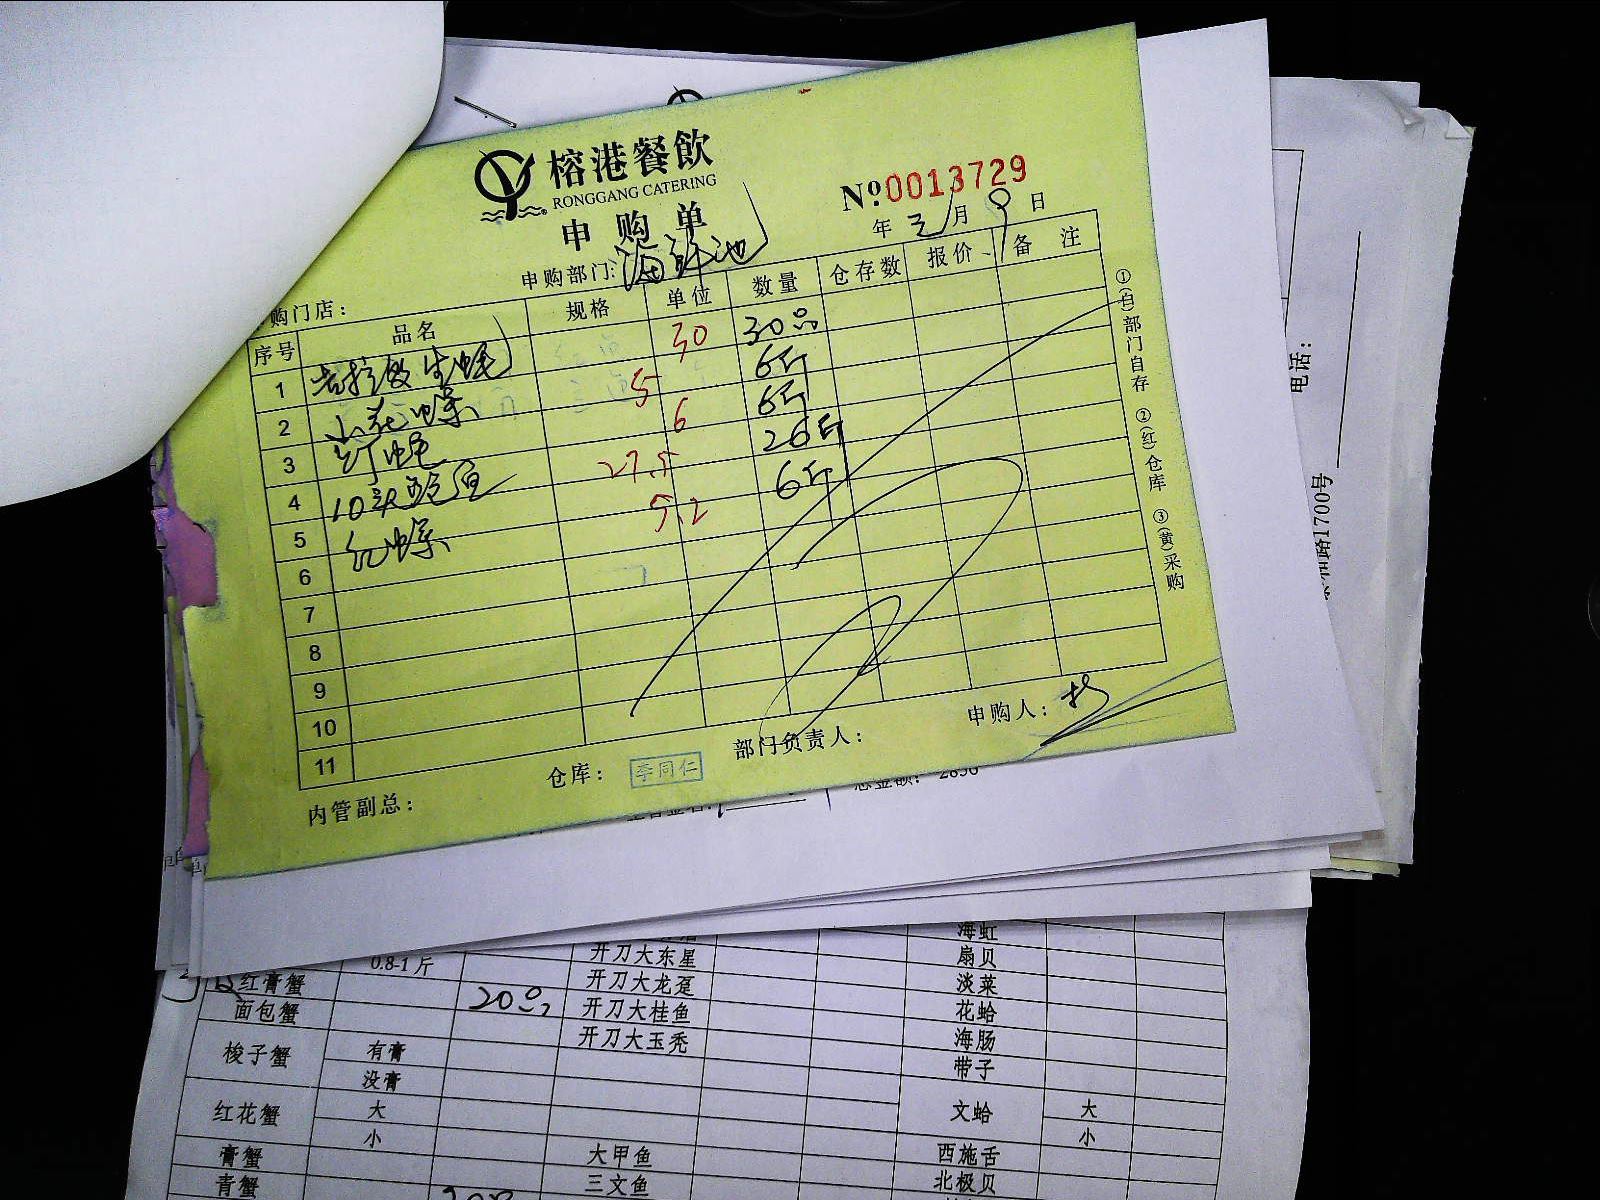 榕港餐飲
RONGGANG CATERING
申购单
№0013729
年 三月 9日
购门店：
申购部门：海鲜池
序号 品名 规格 单位 数量 仓存数 报价 备注
1 吉拉多生蚝 30 30只
2 小花螺 5 6斤
3 6 6斤
4 10头鲍鱼 27.5 26斤
5 红螺 5.2 6斤
6
7
8
9
10
11
内管副总：
仓库： 李同仁
部门负责人：
申购人：
①(白)部门自存 ②(红)仓库 ③(黄)采购
电话：
总金额： 2856
海虹
0.8-1斤 开刀大东星 扇贝
红膏蟹 开刀大龙趸 淡菜
面包蟹 20只 开刀大桂鱼 花蛤
梭子蟹 有膏 开刀大玉秃 海肠
没膏 带子
红花蟹 大 文蛤 大
小 小
膏蟹 大甲鱼 西施舌
青蟹 三文鱼 北极贝